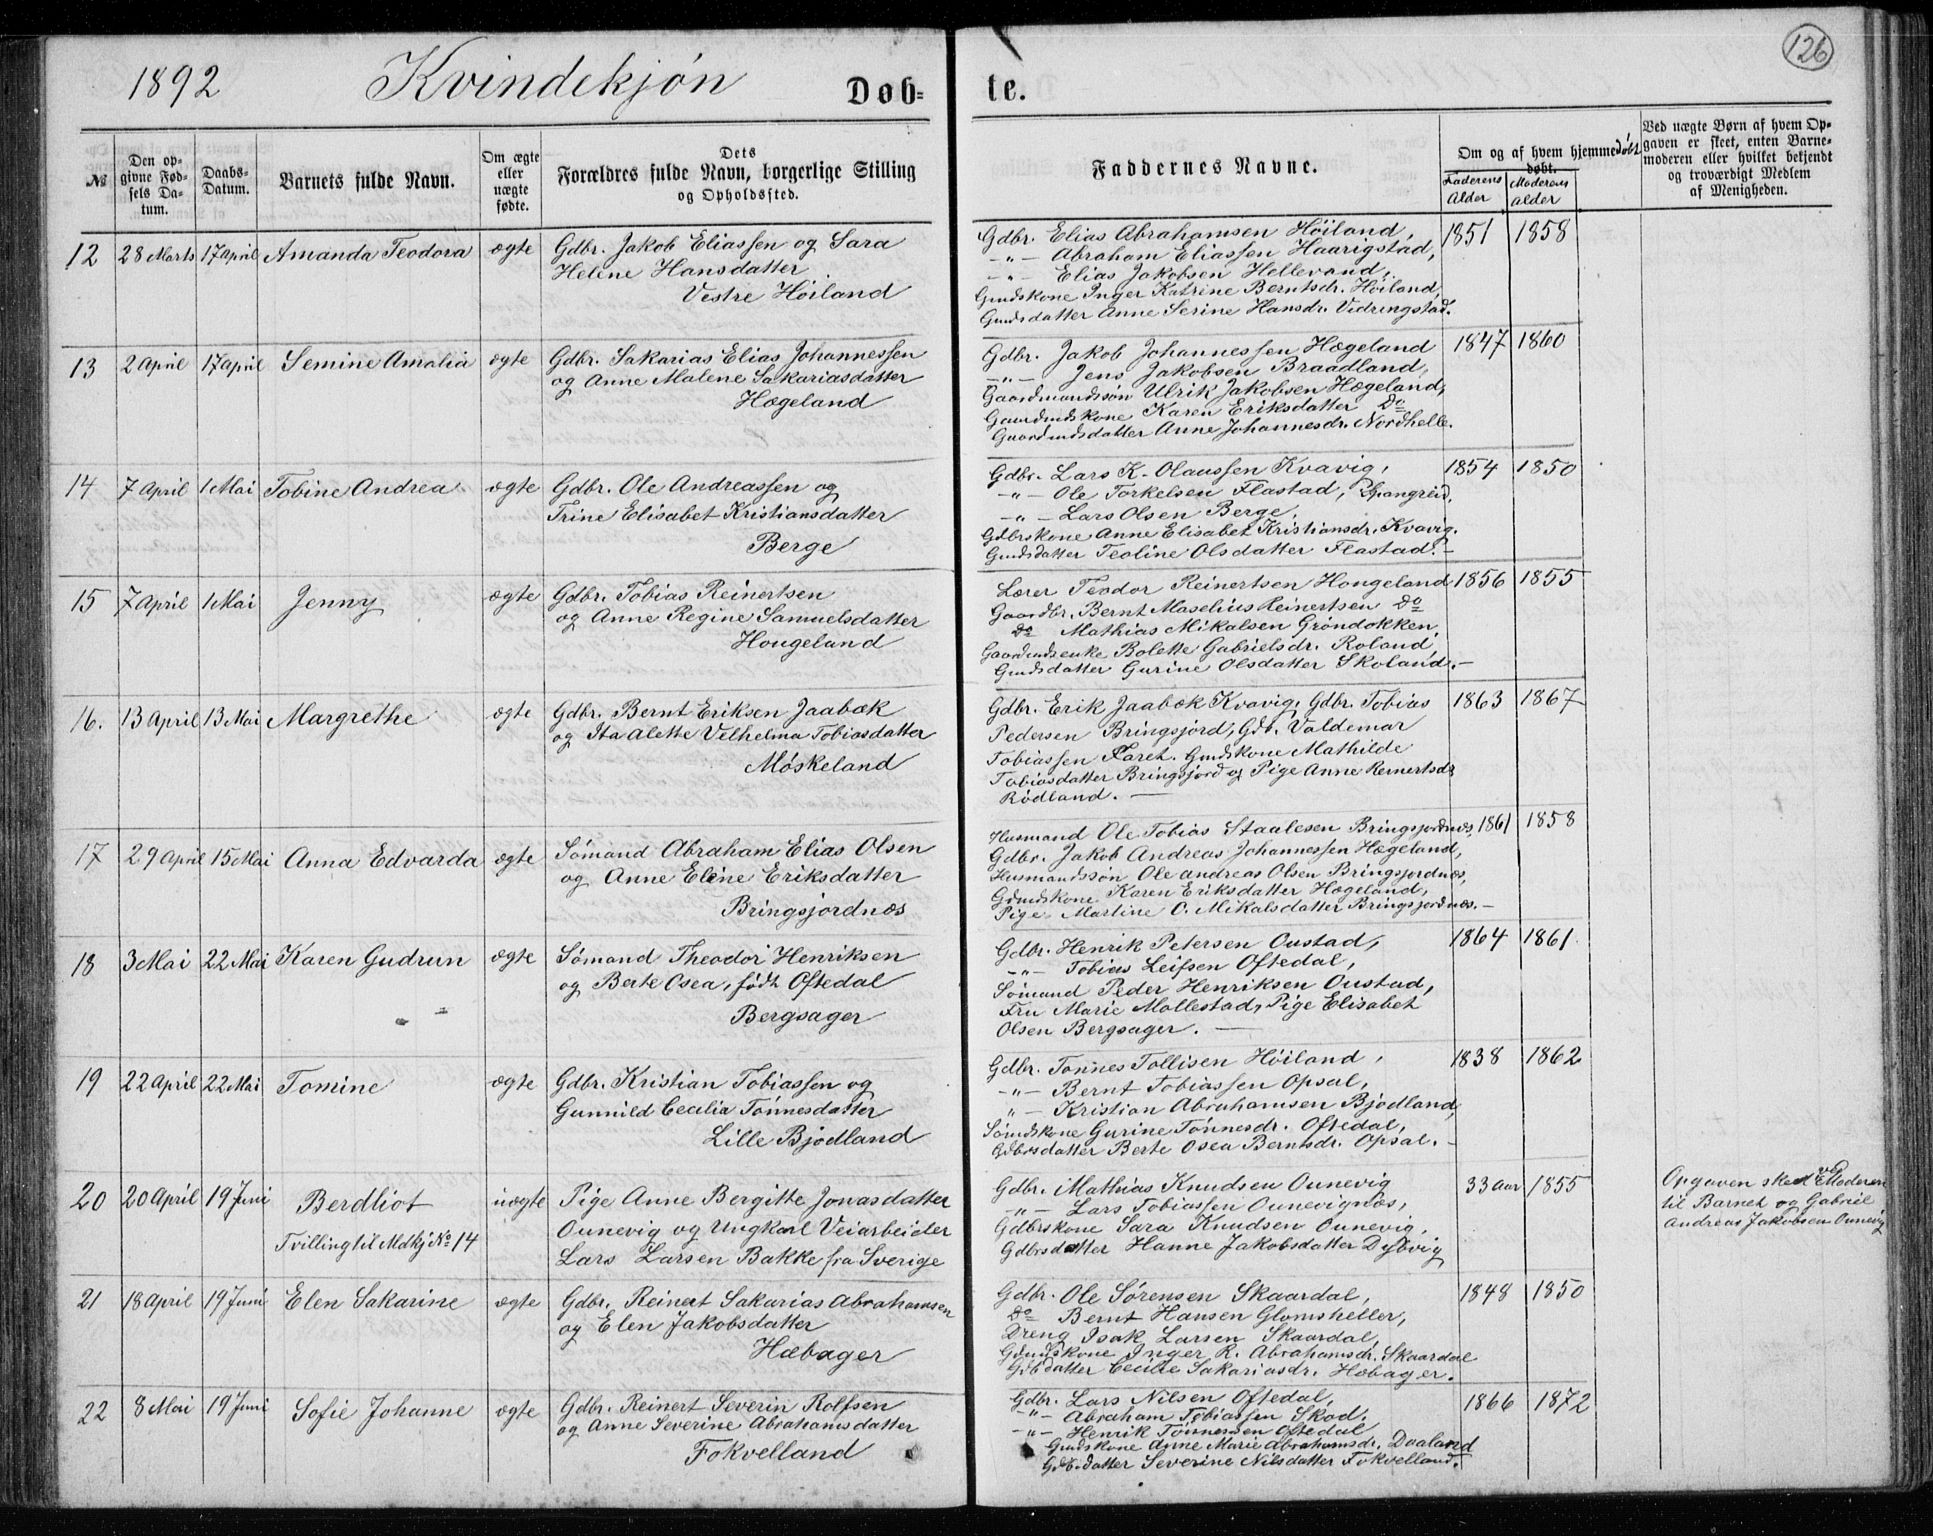 1892 Kvindekjøn Døb= te. 126
No Den opgivne Fødsels Datum. Daabs-Datum. Barnets fulde Navn. Om ægte eller uægte fødte. Dets Forældres fulde Navn, borgerlige Stilling og Opholdssted. Faddernes Navne. Om og af hvem hjemmedøbt døbt. Faderens Alder Moderens alder Ved uægte Børn af hvem Opgaven er skeet, enten Barnemoderen eller hvilket bekjendt og troværdigt Medlem af Menigheden.
12 28 Marts 17 April Amanda Teodora ægte Gdbr. Jakob Eliassen og Sara
Helene Hansdatter
Vestre Høiland
Gdbr. Elias Abrahamsen Høiland, 1851 1858
-"- Abraham Eliassen Haarigstad,
-"- Elias Jakobsen Hellevand,
Gmdskone Inger Katrine Berntsdr. Høiland,
Gmdsdatter Anne Serine Hansdr. Vidringstad.
13 2 April 17 April Semine Amalia ægte Gdbr. Sakarias Elias Johannessen
og Anne Malene Sakariasdatter
Hægeland
Gdbr. Jakob Johannessen Hægeland 1847 1860
-"- Jens Jakobsen Braadland,
Gaardmandssøn Ulrik Jakobsen Hægeland,
Gaardmdskone Karen Eriksdatter Do
Gaardmdsdatter Anne Johannesdr. Nordhelle.
14 7 April 1 Mai Tobine Andrea ægte Gdbr. Ole Andreassen og
Trine Elisabet Kristiansdatter
Berge
Gdbr. Lars K. Olaussen Kvavig, 1854 1850
-"- Ole Torkelsen Flastad, Spangreid,
-"- Lars Olsen Berge,
Gdbrskone Anne Elisabet Kristiansdr. Kvavig.
Gmdsdatter Teoline Olsdatter Flastad.-
15 7 April 1 Mai Jenny ægte Gdbr. Tobias Reinertsen
og Anne Regine Samuelsdatter
Hougeland
Lærer Teodor Reinertsen Hougeland 1856 1855
Gaardbr. Bernt Maselius Reinertsen Do
Do Mathias Mikalsen Grøndokken,
Gaardmdsenke Bolette Gabrielsdr. Roland,
Gmdsdatter Gurine Olsdatter Skoland.-
16. 13 April 13 Mai Margrethe ægte Gdbr. Bernt Eriksen Jaabæk
og Ita Alette Velhelma Tobiasdatter
Møskeland
Gdbr. Erik Jaabæk Kvavig, Gdbr. Tobias 1863 1867
Pedersen Bringsjord, Gdb. Valdemar
Tobiassen Faret. Gmdskone Mathilde
Tobiasdatter Bringsjord og Pige Anne Reinertsdr
Rødland. -
17 29 April 15 Mai Anna Edvarda ægte Sømand Abraham Elias Olsen
og Anne Eline Eriksdatter
Bringsjordnæs
Husmand Ole Tobias Staalesen Bringsjordnæs, 1861 1858
Gdbr. Jakob Andreas Johannessen Hægeland,
Husmandssøn Ole Andreas Olsen Bringsjordnæs,
Gdmdskone Karen Eriksdatter Hægeland,
Pige Martine O. Mikalsdatter Bringsjordnæs.-
18 3 Mai 22 Mai Karen Gudrun ægte Sømand Theodor Henriksen
og Berte Osea, født Oftedal
Bergsager
Gdbr. Henrik Petersen Oustad, 1864 1861
-"- Tobias Leifsen Oftedal,
Sømand Peder Henriksen Oustad,
Fru Marie Mollestad, Pige Elisabet
Olsen Bergsager. -
19 22 April 22 Mai Tomine ægte Gdbr. Kristian Tobiassen og
Gunnild Cecilia Tønnesdatter
Lille Bjodland
Gdbr. Tønnes Tollisen Høiland, 1838 1862
-"- Bernt Tobiassen Opsal,
"- Kristian Abrahamsen Bjodland,
Sømdskone Gurine Tønnesdr. Oftedal,
Gdbrsdatter Berte Osea Berntsdr. Opsal.-
20 20 April 19 Juni Berdliot uægte Pige Anne Bergitte Jonasdatter
Tvilling til Mdkj No 14 Ounevig og Ungkarl Veiarbeider
Lars Larsen Bakke fra Sverige
Gdbr. Mathias Knudsen Ounevig 33 aar 1855 Opgaven skeet ved Moderen
-"- Lars Tobiassen Ounevignæs, til Barnet og Gabriel
Gdbrskone Sara Knudsen Ounevig, Andreas Jakobsen Ounevig
Gdbrsdatter Hanne Jakobsdatter Dybvig
21 18 April 19 Juni Elen Sakarine ægte Gdbr. Reinert Sakarias Abrahamsen
og Elen Jakobsdatter
Hæbager
Gdbr. Ole Sørensen Skaardal, 1848 1850
Do Bernt Hansen Glomsheller,
Dreng Isak Larsen Skaardal,
Gdmdskone Inger R. Abrahamsdr. Skaardal
Gdbdatter Cecilie Sakariasdr. Hæbager.
22 8 Mai 19 Juni Sofie Johanne ægte Gdbr. Reinert Severin Rolfsen
og Anne Severine Abrahamsdatter
Fokvelland
Gdbr. Lars Nilsen Oftedal, 1866 1872
-"- Abraham Tobiassen Skod,
-"- Henrik Tønnessen Oftedal
Gmdskone Anne Marie Abrahamsdr. Daaland
Gdb.datter Severine Nilsdatter Fokvelland.